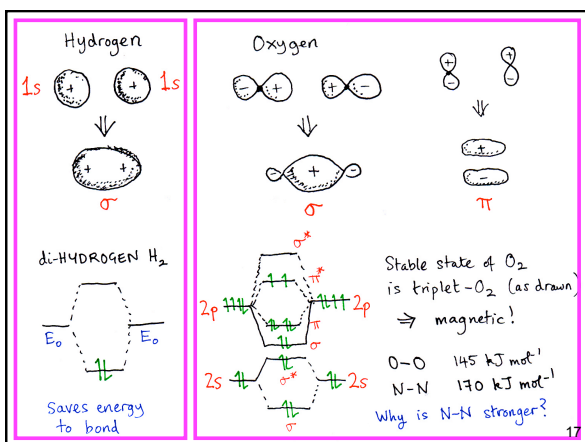 Hydrogen
1s + + 1s
+ +
σ
di-HYDROGEN H₂
E₀ E₀
Saves energy
to bond
Oxygen
- + + -
- + -
σ
+ +
- -
+
-
π
σ*
π*
2p 2p
π
σ
2s σ* 2s
σ
Stable state of O₂
is triplet-O₂ (as drawn)
⇒ magnetic!
O-O 145 kJ mol⁻¹
N-N 170 kJ mol⁻¹
Why is N-N stronger?
17